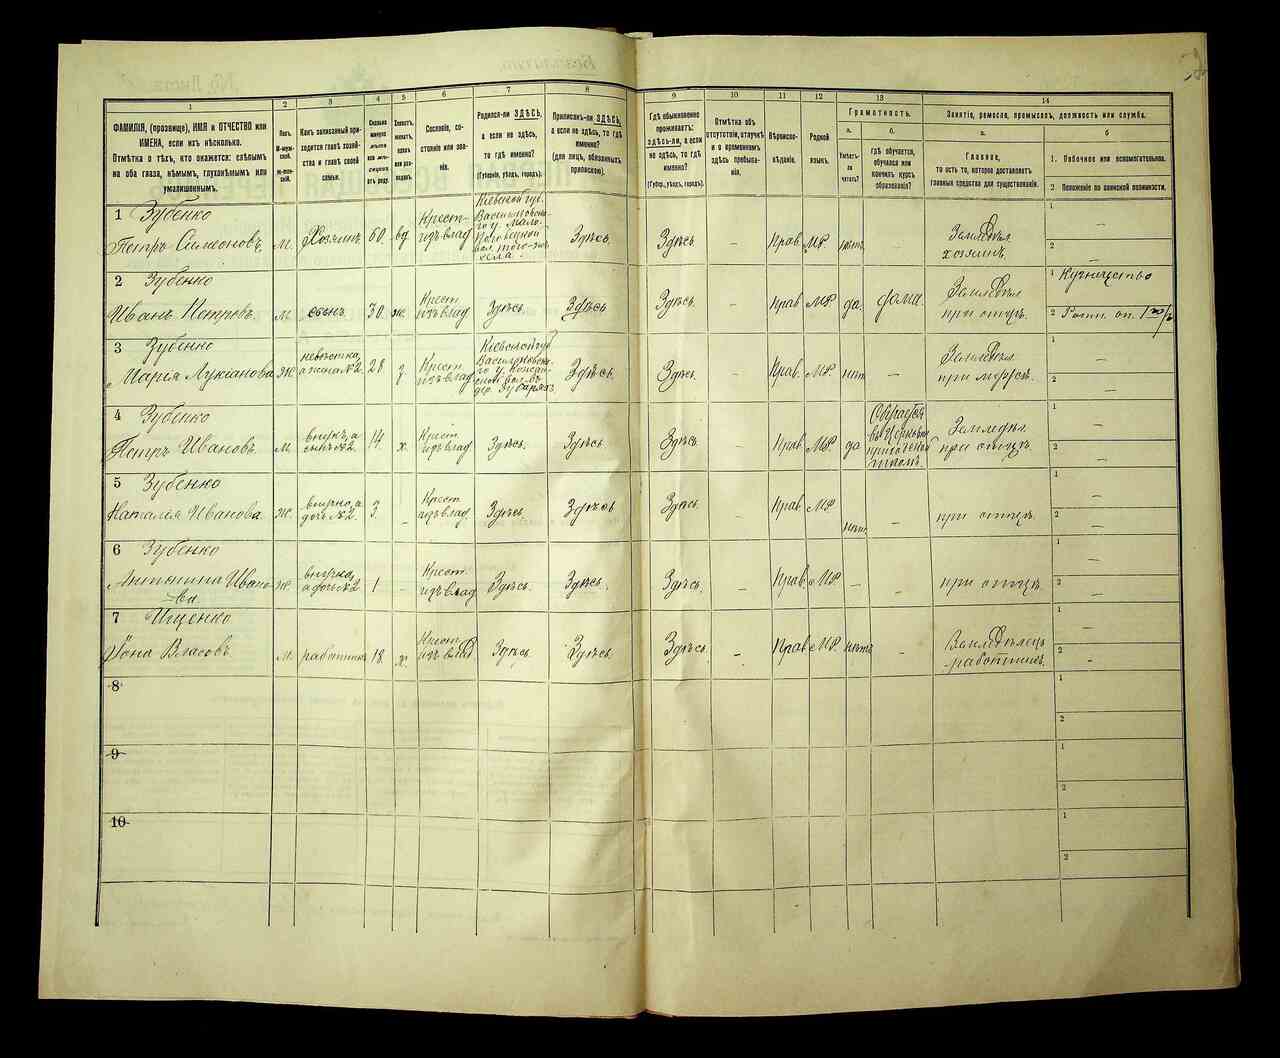 1
2
3
4
5
6
7
8
9
10
11
12
13
14
ФАМИЛІЯ, (прозвище), ИМЯ и ОТЧЕСТВО или
ИМЕНА, если ихъ нѣсколько.
Отмѣтка о тѣхъ, кто окажется: слѣпымъ
на оба глаза, нѣмымъ, глухонѣмымъ или
умалишеннымъ.
Полъ.
М-муж-
ской.
Ж-жен-
скій.
Какъ записанный при-
ходится главѣ хозяй-
ства и главѣ своей
семьи.
Сколько
минуло
лѣтъ
или мѣ-
сяцевъ
отъ роду.
Холостъ,
женатъ,
вдовъ
или раз-
веденъ.
Сословіе, со-
стояніе или зва-
ніе.
Родился-ли ЗДѢСЬ,
а если не здѣсь,
то гдѣ именно?
(Губернія, уѣздъ, городъ).
Приписанъ-ли ЗДѢСЬ,
а если не здѣсь, то гдѣ
именно?
(для лицъ, обязанныхъ
припискою).
Гдѣ обыкновенно
проживаетъ:
ЗДѢСЬ-ли, а если
не здѣсь, то гдѣ
именно?
(Губер., уѣздъ, городъ).
Отмѣтка объ
отсутствіи, отлучкѣ
и о временномъ
здѣсь пребыва-
ніи.
Вѣроиспо-
вѣданіе.
Родной
языкъ.
Грамотность.
а.
Умѣетъ-
ли
читать?
б.
гдѣ обучается,
обучался или
кончилъ курсъ
образованія?
Занятіе, ремесло, промыселъ, должность или служба.
а.
Главное,
то есть то, которое доставляетъ
главныя средства для существованія.
б
1. Побочное или вспомогательное.
2 Положеніе по воинской повинности.
1 Зубенко
Петръ Симеоновъ М. Хозяинъ 60 вд Крест-
изъ влад Кіевской губ.
Васильковска-
го у.
села. Здѣсь Здѣсь – Прав. МР. нѣтъ Земледѣл.
хозяинъ. 1 –
2 –
2 Зубенко
Иванъ Петровъ М. сынъ 30. ж. Крест
изъ влад Здѣсь. Здѣсь Здѣсь. – Прав МР да. дома. Земледѣл
при отцѣ. 1 Кузнечество
2
3 Зубенко
Марія Лукіанова Ж. невѣстка,
а жена №2. 28 з Крест
изъ влад Кіевской губ
Васильковска-
го у.
Здѣсь. Здѣсь. – Прав. МР. нѣтъ – Земледѣл.
при мужѣ. 1 –
2 –
4 Зубенко
Петръ Ивановъ. М. внукъ, а
сынъ №2. 14 х. Крест
изъ влад Здѣсь. Здѣсь Здѣсь – Прав. МР. да въ Церковно
приходской
Земледѣл.
при отцѣ. 1 –
2 –
5 Зубенко
Наталія Иванова. Ж. внучка, а
дочь №2. 3 – Крест
изъ влад. Здѣсь Здѣсь Здѣсь. – Прав МР. нѣтъ – при отцѣ. 1 –
2 –
6 Зубенко
Антонина Ивано-
ва Ж. внучка,
а дочь №2 1 – Крест.
изъ влад Здѣсь. Здѣсь. Здѣсь. – Прав. МР. – при отцѣ. 1 –
2 –
7 Ищенко
Іона Власовъ М. работникъ 18. х. Крест
изъ влад Здѣсь. Здѣсь. Здѣсь. – Прав МР. нѣтъ – Земледѣлецъ
работникъ. 1 –
2 –
8 1
2
9 1
2
10 1
2